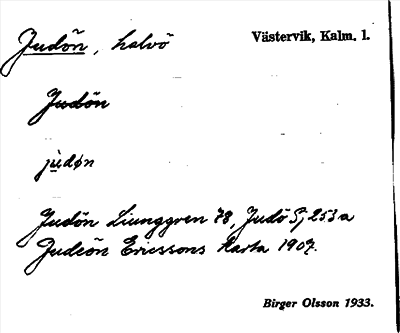 Judön, halvö
Västervik, Kalm. l.
Judön
jùdøn
Judön Ljunggren 78, Judö S, 253 a
Judeön Ericssons Karta 1907.
Birger Olsson 1933.